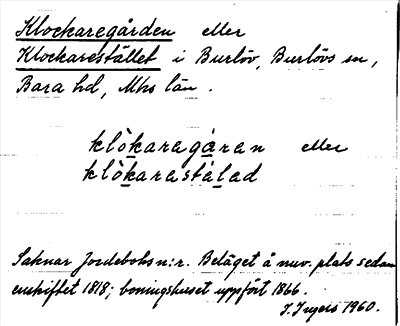 Klockaregården eller
Klockarestället i Burlöv, Burlövs sn,
Bara hd, Mhs län.
klòkaragåran eller
klòkarastälad
Saknar Jordeboksn:r. Beläget å nuv. plats sedan
enskiftet 1818; boningshuset uppfört 1866.
J. Ingers 1960.